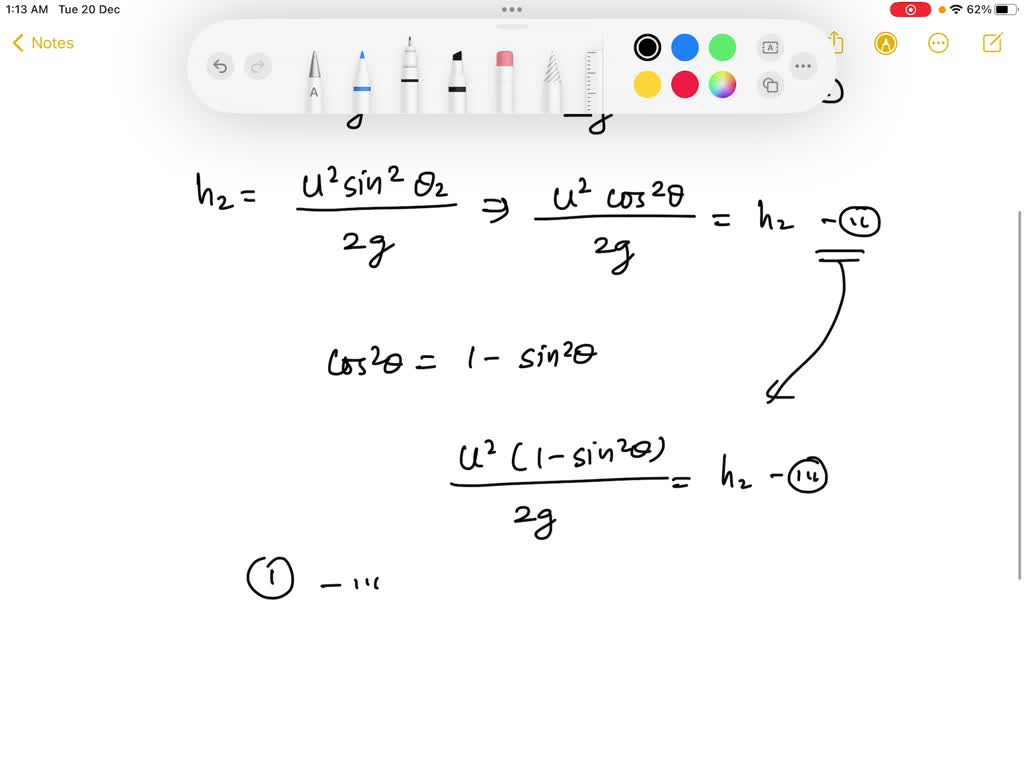 1:13 AM Tue 20 Dec 62%
Notes
A A
h₂ = u² sin² θ₂ / 2g ⇒ u² cos²θ / 2g = h₂ - (ii)
cos²θ = 1 - sin²θ
u² (1 - sin²θ) / 2g = h₂ - (iii)
(1) - iii